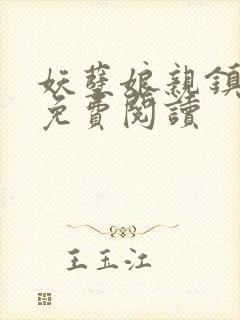 妖孽娘親鎮
免費閱讀
王玉江